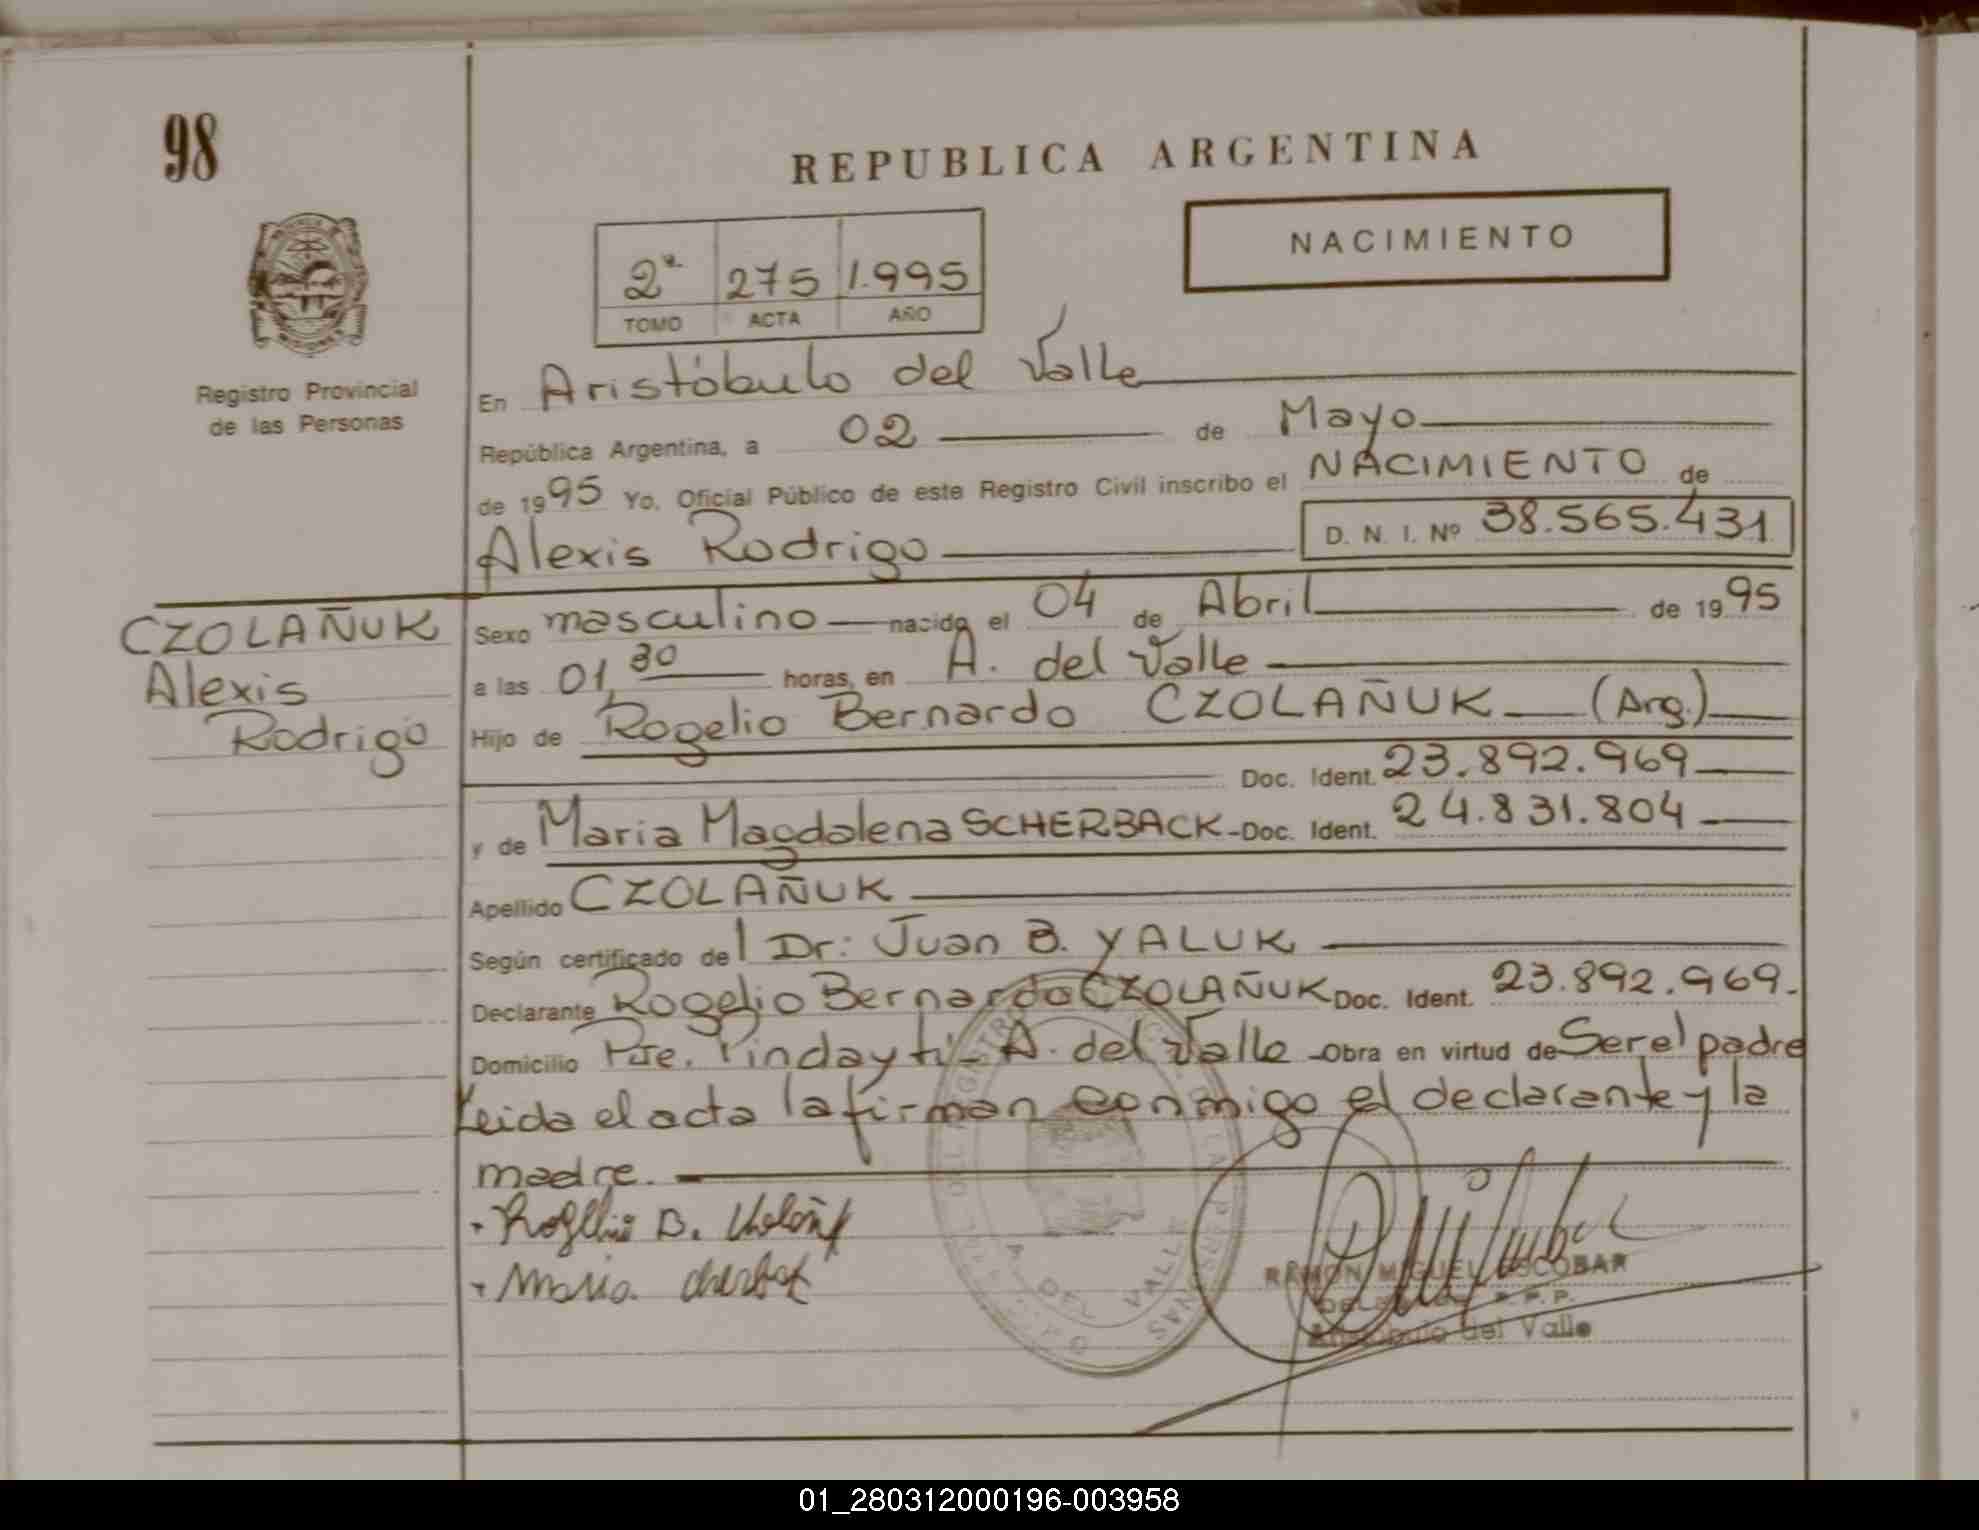 98
REPUBLICA ARGENTINA
NACIMIENTO
2º 275 1.995
TOMO ACTA AÑO
Registro Provincial
de las Personas
En Aristóbulo del Valle
República Argentina, a 02 de Mayo
de 1995 Yo, Oficial Público de este Registro Civil inscribo el NACIMIENTO de
Alexis Rodrigo D. N. I. Nº 38.565.431
CZOLAÑUK
Alexis
Rodrigo
Sexo masculino nacido el 04 de Abril de 1995
a las 01,30 horas, en A. del Valle
Hijo de Rogelio Bernardo CZOLAÑUK (Arg.)
Doc. Ident. 23.892.969
y de Maria Magdalena SCHERBACK - Doc. Ident. 24.831.804
Apellido CZOLAÑUK
Según certificado del Dr: Juan B. YALUK
Declarante Rogelio Bernardo CZOLAÑUK Doc. Ident. 23.892.969.
Domicilio Pje. Pindaytí - A. del Valle - Obra en virtud de Ser el padre
Leida el acta la firman conmigo el declarante y la
madre.
Rogelio B.
Maria
A. DEL VALLE
RAMON MIGUEL ESCOBAR
Aristóbulo del Valle
01_280312000196-003958